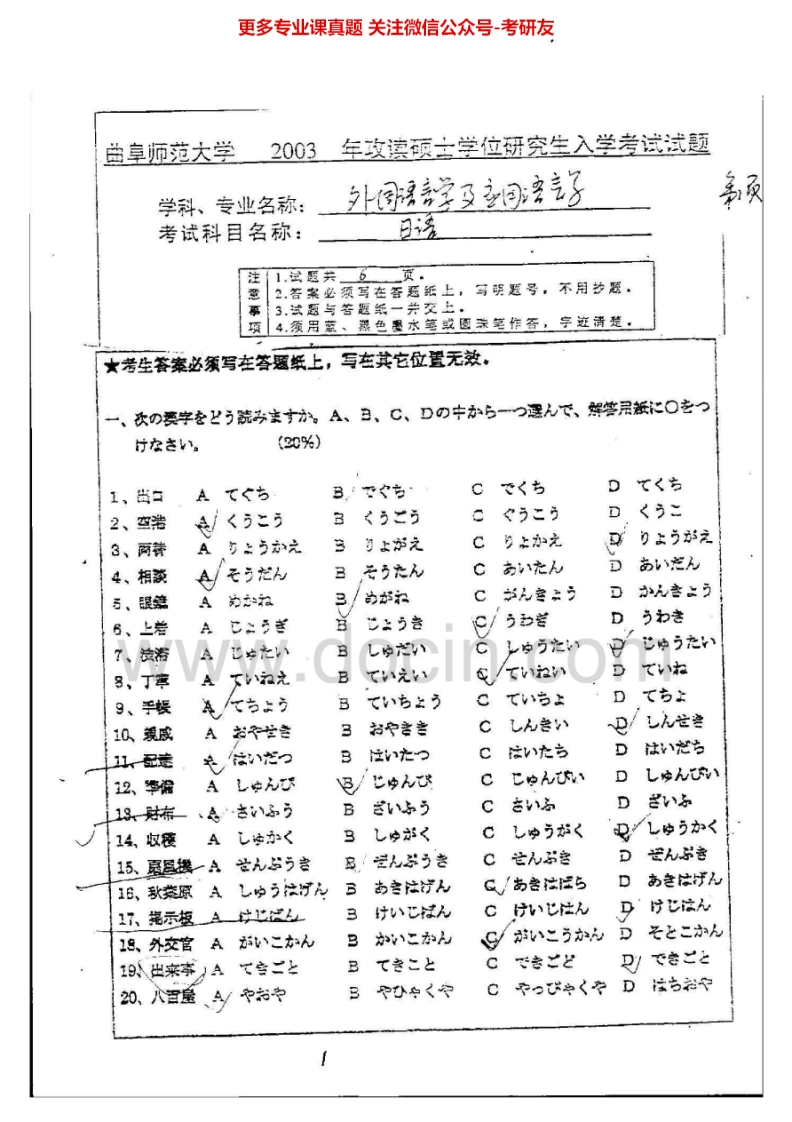 更多专业课真题 关注微信公众号-考研友
曲阜师范大学 2003 年攻读硕士学位研究生入学考试试题
学科、专业名称: 外国语言学及应用语言学
考试科目名称: 日语
注意事项
1.试题共 6 页。
2.答案必须写在答题纸上,写明题号,不用抄题。
3.试题与答题纸一并交上。
4.须用蓝、黑色墨水笔或圆珠笔作答,字迹清楚。
★考生答案必须写在答题纸上,写在其它位置无效。
一、次の漢字をどう読みますか。A、B、C、Dの中から一つ選んで、解答用紙に〇をつ
けなさい。 (20%)
1、出口 A てぐち B でぐち C でくち D てくち
2、空港 A くうこう B くうごう C ぐうこう D くうこ
3、両替 A りょうかえ B りょがえ C りょかえ D りょうがえ
4、相談 A そうだん B そうたん C あいたん D あいだん
5、眼鏡 A めかね B めがね C がんきょう D かんきょう
6、上着 A じょうぎ B じょうき C うわぎ D うわき
7、渋滞 A じゅたい B しゅだい C しゅうたい D じゅうたい
8、丁寧 A ていねえ B ていえい C ていねい D ていね
9、手帳 A てちょう B ていちょう C ていちょ D てちょ
10、親戚 A おやせき B おやきき C しんきい D しんせき
11、配達 A はいだつ B はいたつ C はいたち D はいだち
12、準備 A しゅんび B じゅんび C じゅんびい D しゅんびい
13、財布 A さいふう B ざいふう C さいふ D ざいふ
14、収穫 A しゅかく B しゅがく C しゅうがく D しゅうかく
15、扇風機 A せんぷうき B ぜんぷうき C せんぷき D ぜんぷき
16、秋葉原 A しゅうはげん B あきはげん C あきはばら D あきはげん
17、掲示板 A けじばん B けいじばん C けいじはん D けじはん
18、外交官 A がいこかん B かいこかん C がいこうかん D そとこかん
19、出来事 A てきごと B てきこと C できごど D できごと
20、八百屋 A やおや B やひゃくや C やっぴゃくや D はちおや
www.docin.com
1